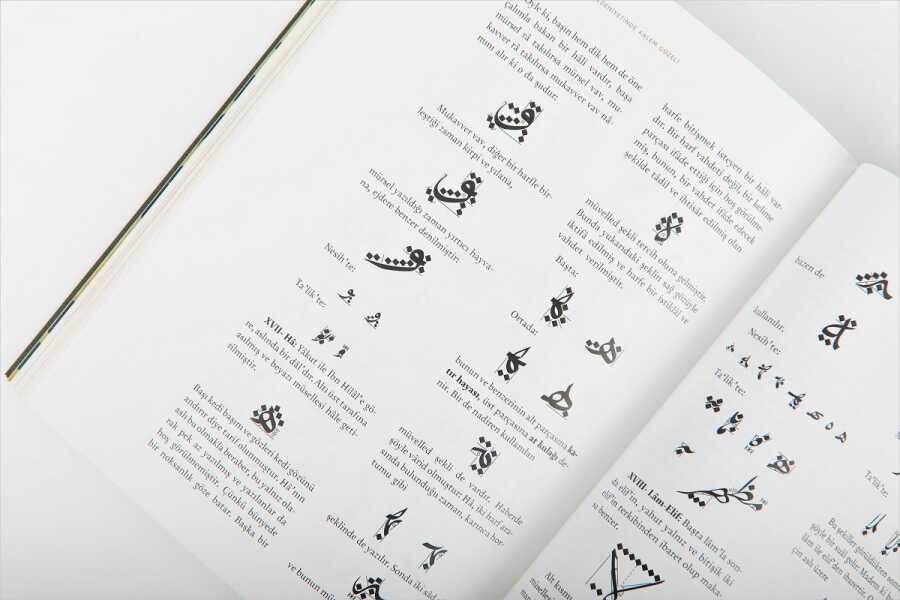 DENİYETİNDE KALEM GÜZELİ
öyle ki, başın hem dik hem de öne
çalımla bakan bir hâli vardır, başa
mürsel râ takılırsa mürsel vav, mu-
kavver râ takılırsa mukavver vav nâ-
mını alır ki o da şudur:
Mukavver vav, diğer bir harfle bir-
leştiği zaman kirpi ve yılana,
mürsel yazıldığı zaman yırtıcı hayva-
na, ejdere benzer denilmiştir:
Nesih'te:
Ta'lik'te:
XVII- Hâ: Yâkut ile İbn Hilâl'e gö-
re, aslında bir dâl'dır. Altı üst tarafına
asılmış ve beyazı müsellesi hâle geti-
rilmiştir.
Başı kedi başını ve gözleri kedi gözünü
andırır diye tarif olunmuştur. Hâ'nın
aslı bu olmakla beraber, bu yalnız ola-
rak pek az yazılmış ve yazılanlar da
hoş görülmemiştir. Çünkü bünyede
bir noksanlık göze batar. Başka bir
harfe bitişmek isteyen bir hâli var-
dır. Bir harf vahdeti değil, bir kelime
parçası ifâde ettiği için hoş görülme-
miş, bunun, bir vahdet ifâde edecek
şekilde tâdil ve ihtisâr edilmiş olan
müvelled şekli tercih oluna gelmiştir.
Bunda yukarıdaki şeklin sağ gözüyle
iktifâ edilmiş ve harfe bir istiklâl ve
vahdet verilmiştir.
Başta:
Ortada:
bunun ve benzerinin alt parçasına ka-
tır hayası, üst parçasına at kulağı de-
nir. Bir de nadiren kullanılan
müvelled şekli de vardır. Haberde
şöyle vârid olmuştur: Hâ, iki harf ara-
sında bulunduğu zaman, karınca hor-
tumu gibi
şeklinde de yazılır. Sonda iki
ve bunun
bazen de
kullanılır.
Nesih'te:
Ta'lik'te:
XVIII- Lâm-Elif: Başta lâm'la son-
da elif'in, yahut yalnız ve bitişik iki
elif'in terkibinden ibaret olup maka-
sı benzer.
Alt kısmı
Ta'lik
Bu şekiller gömülükten
şöyle bir suâl gelir: Madem ki
lâm ile elif'den ibarettir,
çin aslı üzere